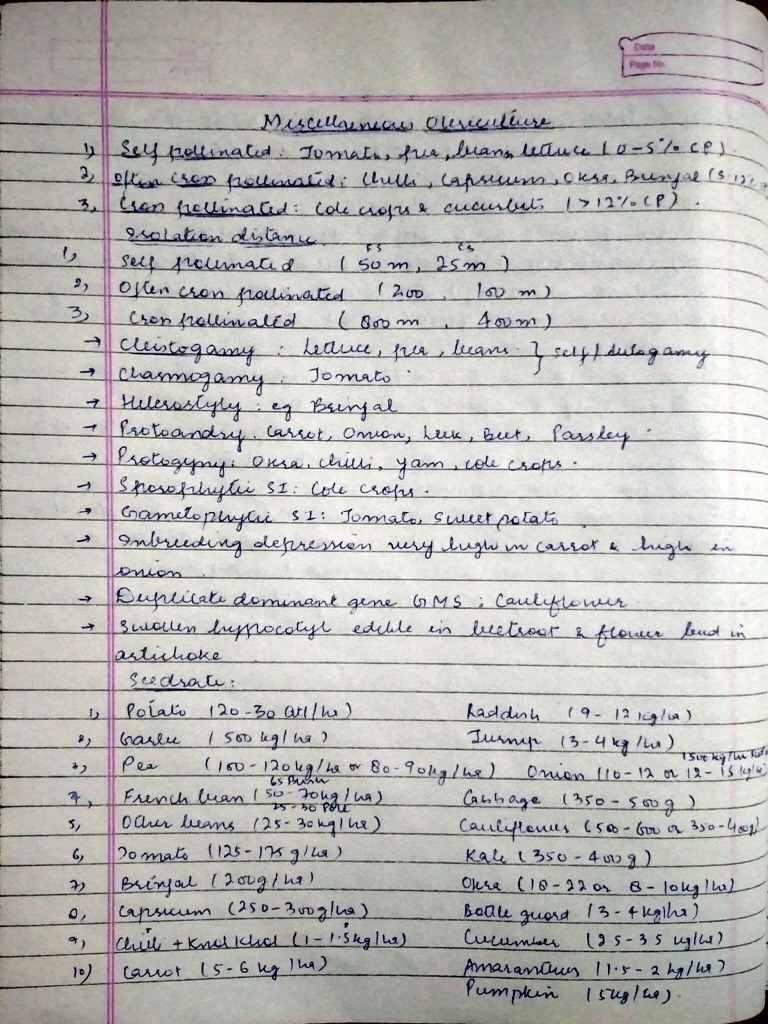 Date
Page No.
Miscellaneous Olericulture
1, Self pollinated: Tomato, pea, beans, lettuce (0-5% CP).
2, Often cross pollinated: Chilli, Capsicum, Okra, Brinjal (5-12%
3, Cross pollinated: Cole crops & cucurbits (>12% CP).
Isolation distance
FS CS
1, Self pollinated (50m, 25m)
2, Often cross pollinated (200, 100 m)
3, Cross pollinated (800m, 400m)
→ Cleistogamy: Lettuce, pea, beans } self/autogamy
→ Chasmogamy: Tomato
→ Heterostyly: eg Brinjal
→ Protoandry: Carrot, Onion, Leek, Beet, Parsley
→ Protogyny: Okra, Chilli, yam, cole crops.
→ Sporophytic SI: Cole crops.
→ Gametophytic SI: Tomato, Sweet potato
→ Inbreeding depression very high in carrot & high in
onion.
→ Duplicate dominant gene GMS: Cauliflower
→ Swollen hypocotyl edible in beetroot & flower bud in
artichoke
Seedrate:
1, Potato (20-30 qtl/ha) Raddish (9-12 kg/ha)
2, Garlic (500 kg/ha) Turnip (3-4 kg/ha)
3, Pea (100-120 kg/ha or 80-90kg/ha) Onion (10-12 or 12-15 kg/ha)
4, French bean (50-70kg/ha) Cabbage (350-500g)
25-30 Pole
5, Other beans (25-30kg/ha) Cauliflower (500-600 or 350-400g)
6, Tomato (125-175 g/ha) Kale (350-400g)
7, Brinjal (200g/ha) Okra (18-22 or 8-10kg/ha)
8, Capsicum (250-300g/ha) Bottle guard (3-4kg/ha)
9, Chilli + Knol Khol (1-1.5kg/ha) Cucumber (2.5-3.5 kg/ha)
10) Carrot (5-6 kg/ha) Amaranthus (1.5-2 kg/ha)
Pumpkin (5kg/ha).